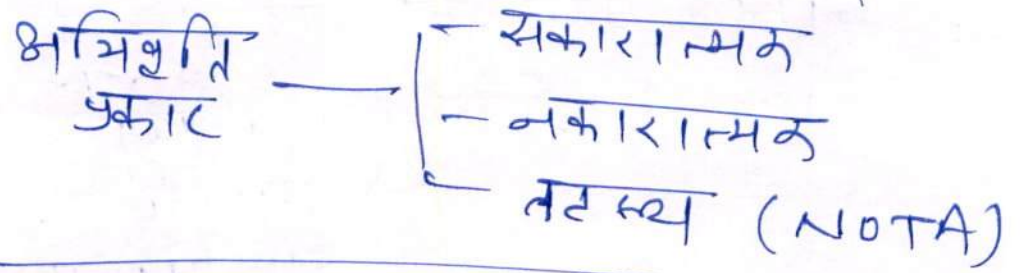 अभिवृत्ति
प्रकार
- सकारात्मक
- नकारात्मक
- तटस्थ (NOTA)